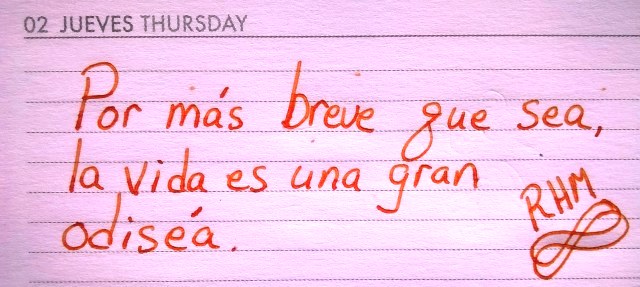 02 JUEVES THURSDAY
Por más breve que sea,
la vida es una gran
odiséa.
RHM